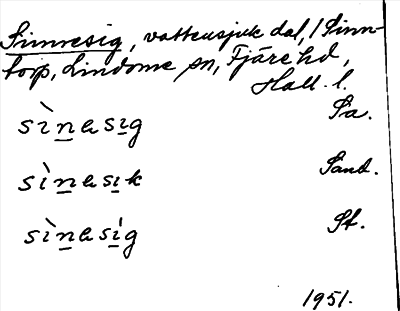 Sinnesig, vattensjuk dal, / Sinn-
torp, Lindome sn, Fjäre hd,
Hall. l.
sìnesig Sa.
sìnesik Sand.
sìnesig St.
1951.